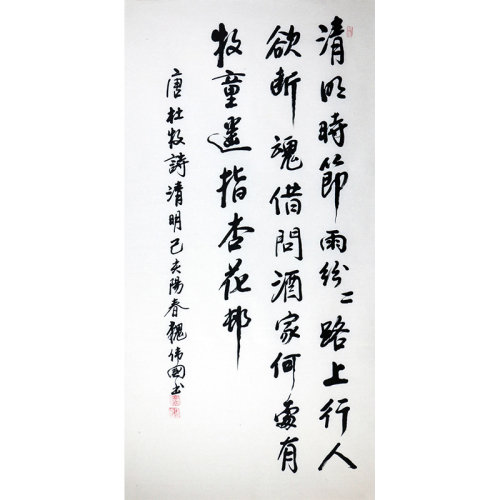 清明時節雨紛〻路上行人
欲断魂借問酒家何處有
牧童遥指杏花邨
唐杜牧詩清明己亥陽春魏伟國书